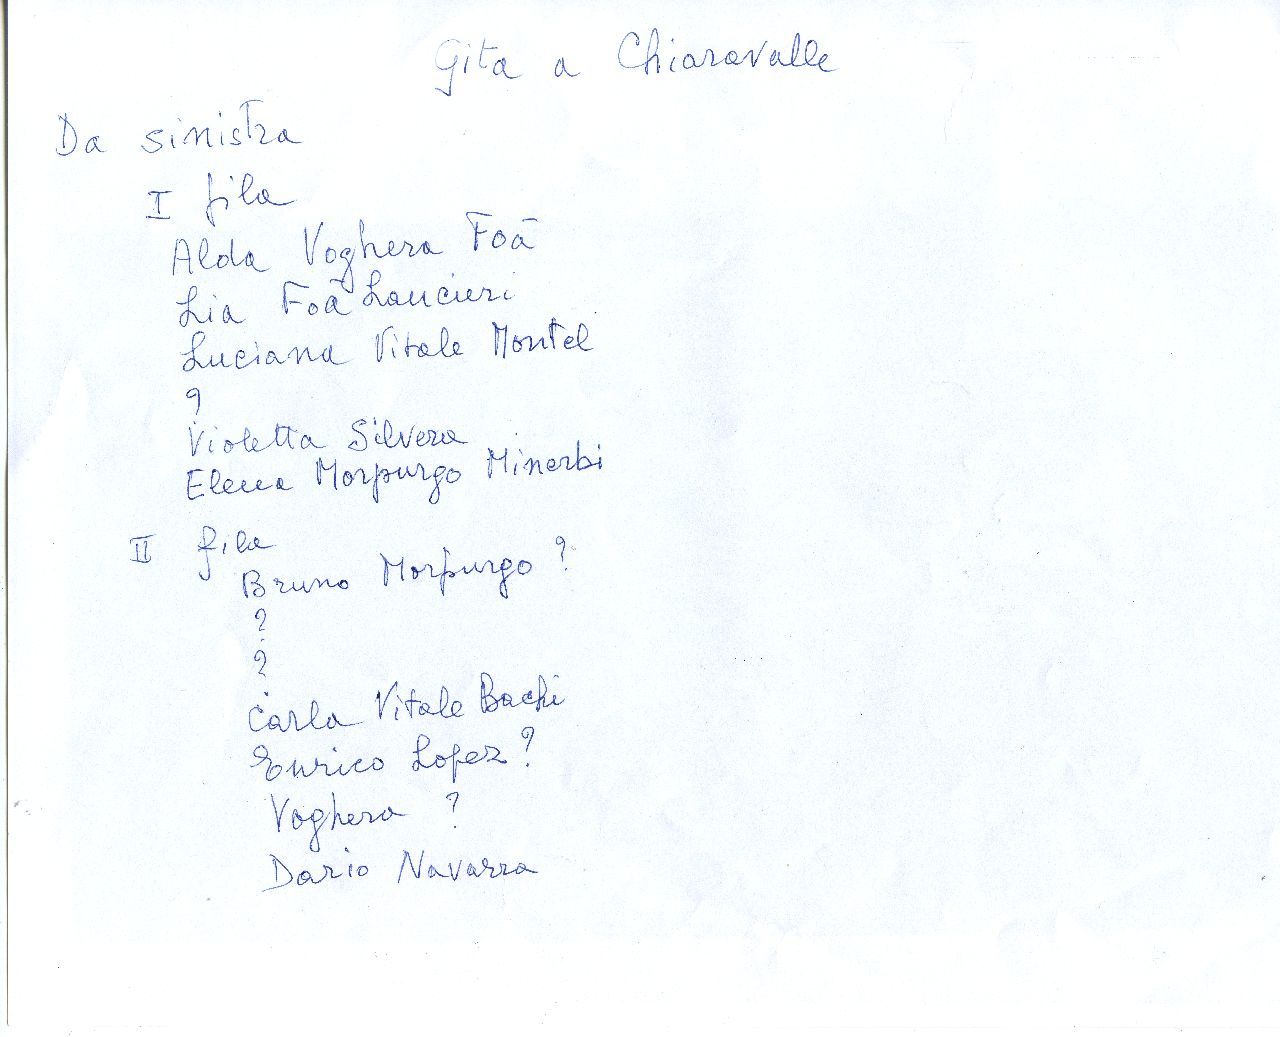 Gita a Chiaravalle
Da sinistra
I fila
Alda Voghera Foà
Lia Foà Lancieri
Luciana Vitale Montel
?
Violetta Silvera
Elena Morpurgo Minerbi
II fila
Bruno Morpurgo ?
?
?
Carla Vitale Bachi
Enrico Lopez ?
Voghera ?
Dario Navarra